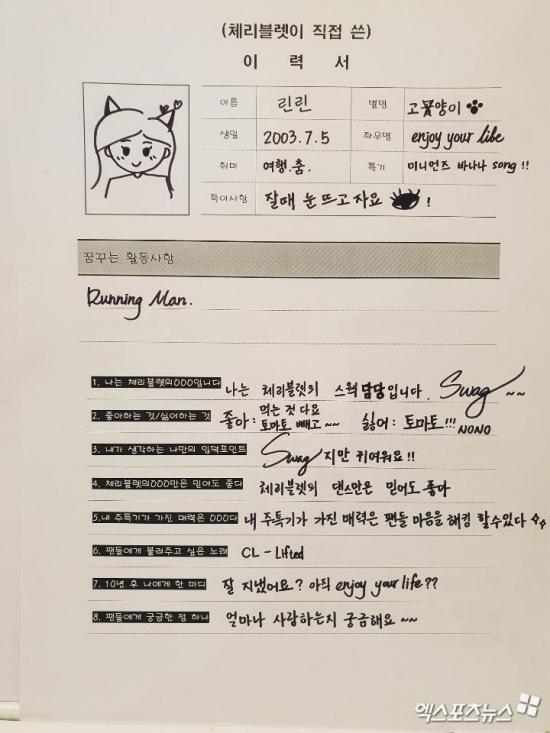 (체리블렛이 직접 쓴)
이 력 서
이름 린린 별명 고 양이
생일 2003.7.5 좌우명 enjoy your libe
취미 여행.춤. 특기 미니언즈 바나나 song !!
특이사항 잘때 눈 뜨고 자요 !
꿈꾸는 활동사항
Running Man.
1. 나는 체리블렛의OOO입니다 나는 체리블렛의 스웩 담당입니다. Swag ~~
2. 좋아하는 것/싫어하는 것 좋아: 먹는 것 다요 토마토 빼고~~ 싫어: 토마토!!! NONO
3. 내가 생각하는 나만의 입덕포인트 Swag 지만 귀여워요!!
4. 체리블렛의OOO만은 믿어도 좋다 체리블렛의 댄스만은 믿어도 좋아
5.내 주특기가 가진 매력은 OOO다 내 주특기가 가진 매력은 팬들 마음을 해킹 할수있다
6. 팬들에게 불러주고 싶은 노래 CL - Lifted
7. 10년 후 나에게 한 마디 잘 지냈어요? 아직 enjoy your life??
8. 팬들에게 궁금한 점 하나 얼마나 사랑하는지 궁금해요 ~~
엑스포츠뉴스